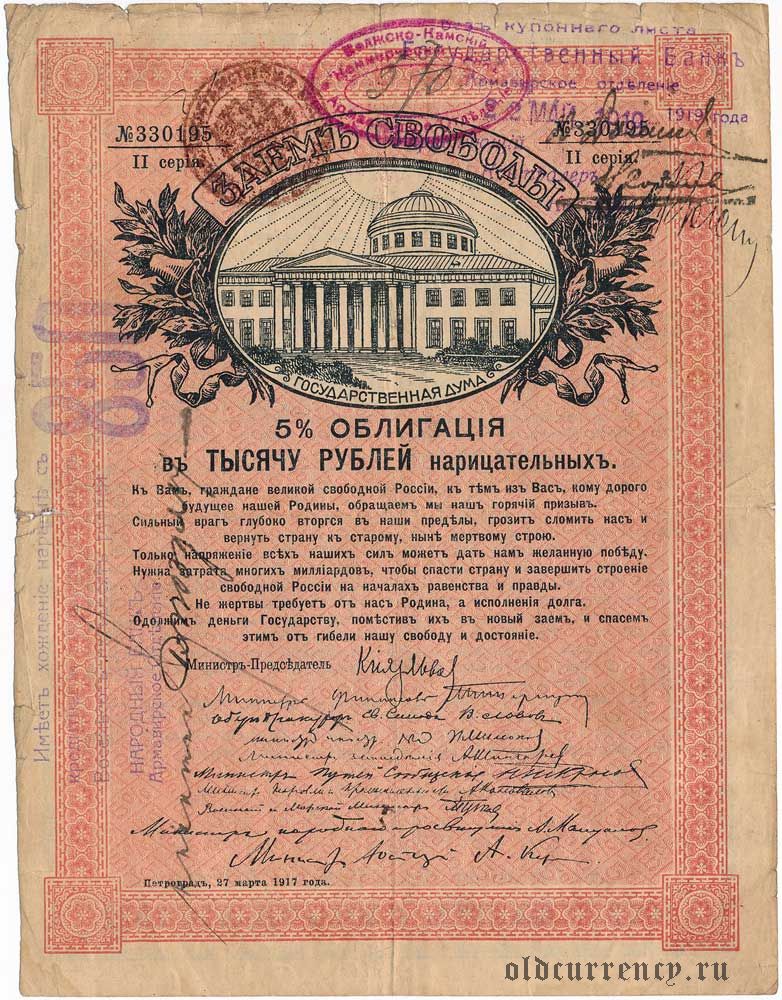 Безъ купоннаго листа
Государственный Банкъ
Армавирское отдѣленіе
2 МАЙ 1919
1919 года
Волжско-Камскій
570
№330195
№330195
II серія.
II серія.
ЗАЕМЪ СВОБОДЫ
ГОСУДАРСТВЕННАЯ ДУМА
5% ОБЛИГАЦІЯ
въ ТЫСЯЧУ РУБЛЕЙ нарицательныхъ.
Къ Вамъ, граждане великой свободной Россіи, къ тѣмъ изъ Васъ, кому дорого
будущее нашей Родины, обращаемъ мы нашъ горячій призывъ.
Сильный врагъ глубоко вторгся въ наши предѣлы, грозитъ сломить насъ и
вернуть страну къ старому, нынѣ мертвому строю.
Только напряженіе всѣхъ нашихъ силъ можетъ дать намъ желанную побѣду.
Нужна затрата многихъ милліардовъ, чтобы спасти страну и завершить строеніе
свободной Россіи на началахъ равенства и правды.
Не жертвы требуетъ отъ насъ Родина, а исполненія долга.
Одолжимъ деньги Государству, помѣстивъ ихъ въ новый заемъ, и спасемъ
этимъ отъ гибели нашу свободу и достояніе.
Министръ-Предсѣдатель Князь Львов
Министръ Финансовъ
Оберъ Прокуроръ Св. Синода В. Львовъ
Министръ Путей Сообщенія
Министръ Торговли и Промышленности А Коноваловъ
Военный и Морской Министръ
Министръ народнаго просвѣщенія А. Мануйловъ
Министръ Юстиціи А. Кер
Петроградъ, 27 марта 1917 года.
Имѣетъ хожденіе наравнѣ съ
850
НАРОДНЫЙ БАНКЪ
Армавирское Отдѣленіе
oldcurrency.ru